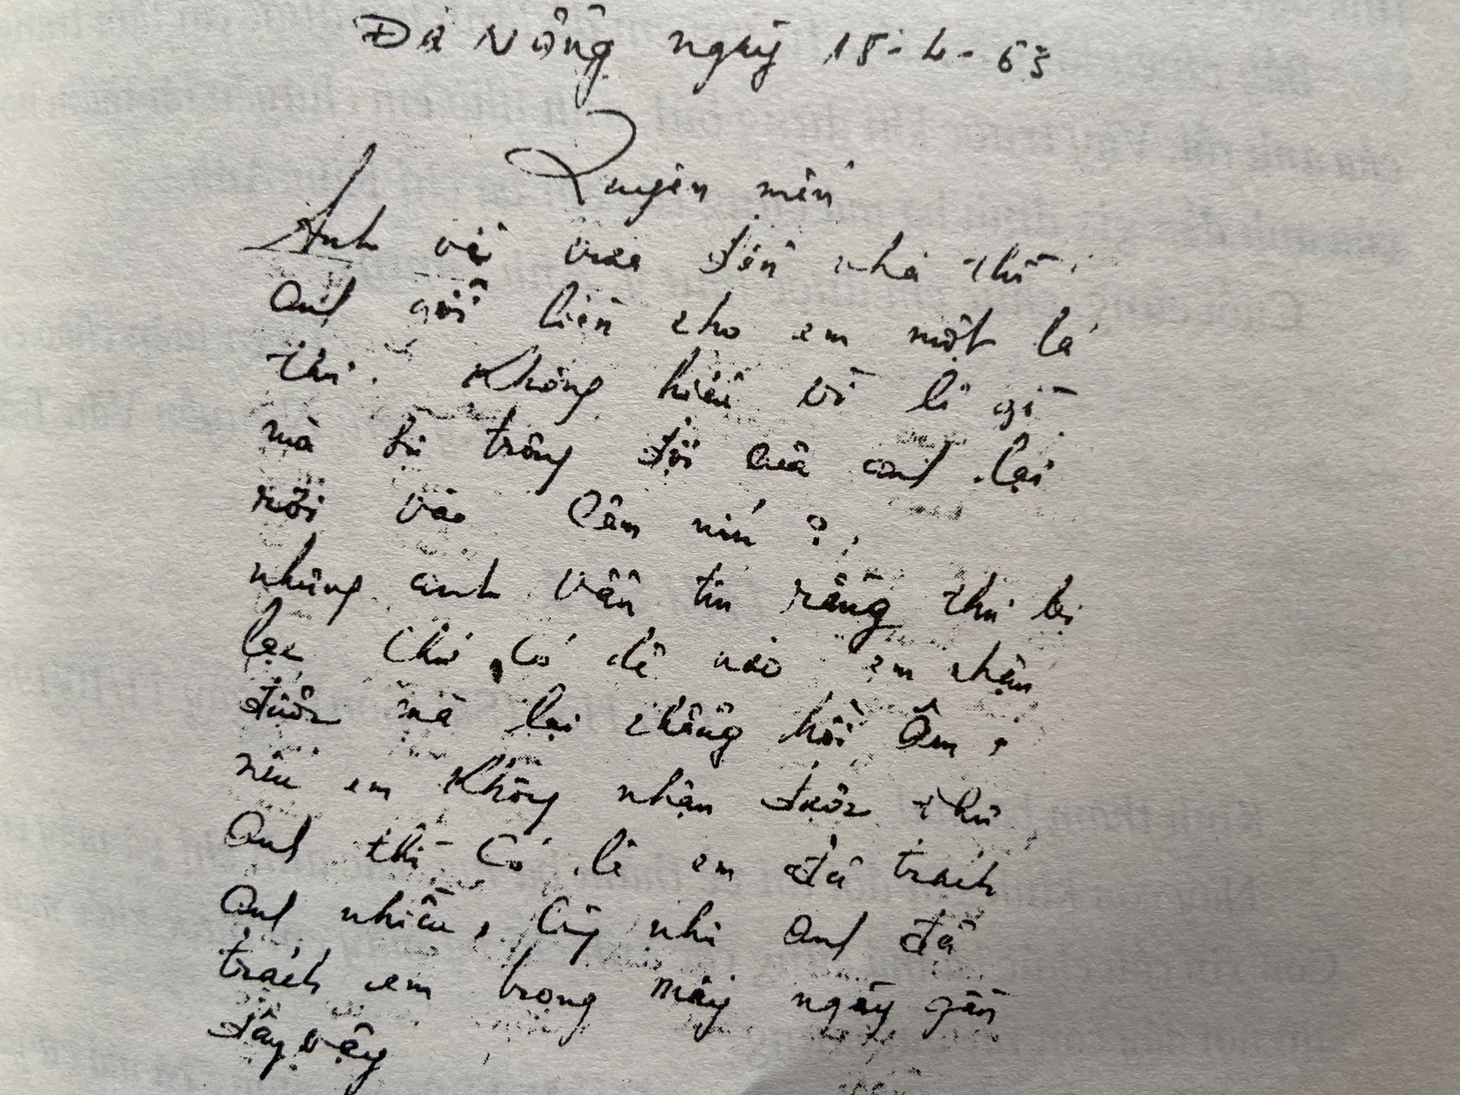 Đà Nẵng ngày 18-4-63
Quyên mến
Anh về vừa đến nhà thì
anh gởi liền cho em một lá
thư. Không hiểu vì lí gì
mà sự trông đợi của anh lại
rơi vào câm nín?
nhưng anh vẫn tin rằng thư bị
lạc chứ có lẽ nào em nhận
được mà lại chẳng hồi âm,
nếu em không nhận được thư
anh thì có lẽ em đã trách
anh nhiều, cũng như anh đã
trách em trong mấy ngày gần
đây vậy